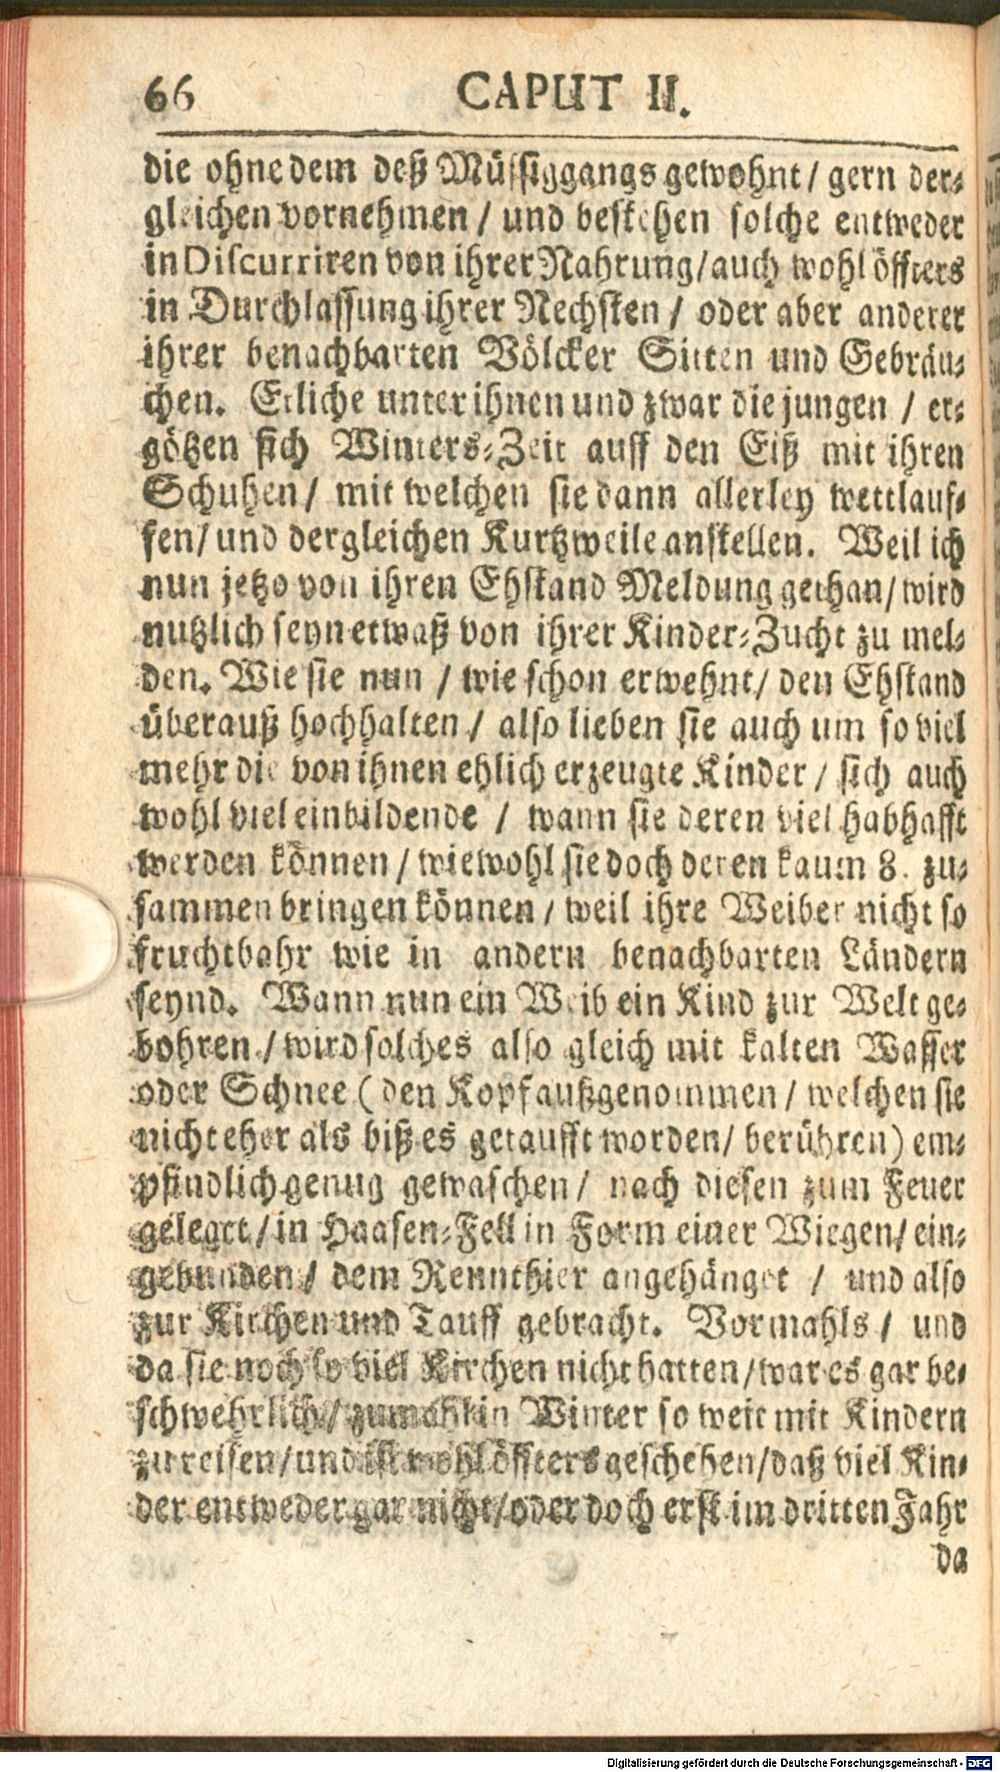 66 CAPUT II.
die ohne dem deß Müssiggangs gewohnt / gern der-
gleichen vornehmen / und bestehen solche entweder
in Discurriren von ihrer Nahrung / auch wohl öffters
in Durchlassung ihrer Nechsten / oder aber anderer
ihrer benachbarten Völcker Sitten und Gebräu-
chen. Etliche unter ihnen und zwar die jungen / er-
götzen sich Winters-Zeit auff den Eiß mit ihren
Schuhen / mit welchen sie dann allerley wettlauf-
fen / und dergleichen Kurtzweile anstellen. Weil ich
nun jetzo von ihren Ehstand Meldung gethan / wird
nutzlich seyn etwaß von ihrer Kinder-Zucht zu mel-
den. Wie sie nun / wie schon erwehnt / den Ehstand
überauß hochhalten / also lieben sie auch um so viel
mehr die von ihnen ehlich erzeugte Kinder / sich auch
wohl viel einbildende / wann sie deren viel habhafft
werden können / wiewohl sie doch deren kaum 8. zu-
sammen bringen können / weil ihre Weiber nicht so
fruchtbahr wie in andern benachbarten Ländern
seynd. Wann nun ein Weib ein Kind zur Welt ge-
bohren / wird solches also gleich mit kalten Wasser
oder Schnee ( den Kopf außgenommen / welchen sie
nicht eher als biß es getaufft worden / berühren ) em-
pfindlich genug gewaschen / nach diesen zum Feuer
geleget / in Haasen-Fell in Form einer Wiegen / ein-
gebunden / dem Rennthier angehänget / und also
zur Kirchen und Tauff gebracht. Vormahls / und
da sie noch so viel Kirchen nicht hatten / war es gar be-
schwehrlich / zumahl in Winter so weit mit Kindern
zu reisen / und ist wohl öffters geschehen / daß viel Kin-
der entweder gar nicht / oder doch erst im dritten Jahr
da
Digitalisierung gefördert durch die Deutsche Forschungsgemeinschaft - DFG